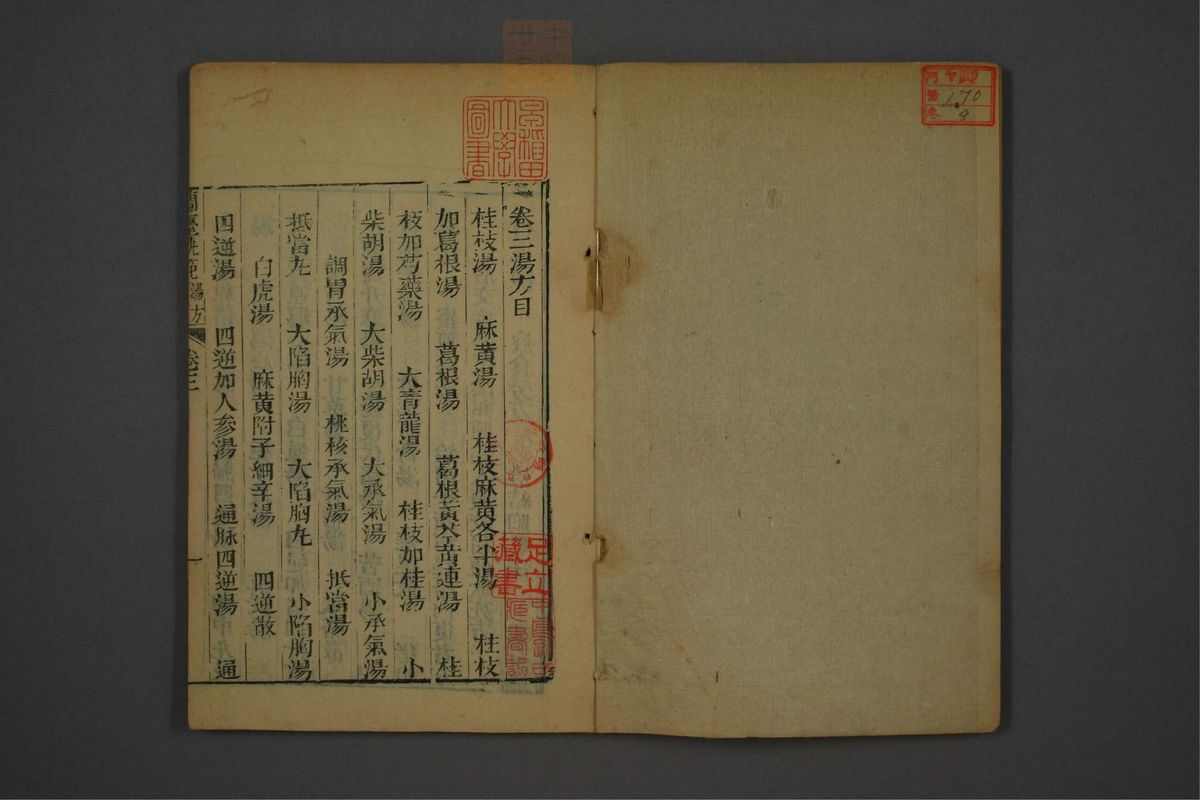 卷三湯方目
桂枝湯 麻黄湯 桂枝麻黄各半湯 桂枝
加葛根湯 葛根湯 葛根黄芩黄連湯 桂
枝加芍藥湯 大青龍湯 桂枝加桂湯 小
柴胡湯 大柴胡湯 大承氣湯 小承氣湯
調胃承氣湯 桃核承氣湯 抵當湯
抵當丸 大陷胸湯 大陷胸丸 小陷胸湯
白虎湯 麻黄附子細辛湯 四逆散
四逆湯 四逆加人參湯 通脉四逆湯 通
蘭臺軌範湯方 卷三 一
早稻田大學圖書
足立藏書
門
號 170
卷 9